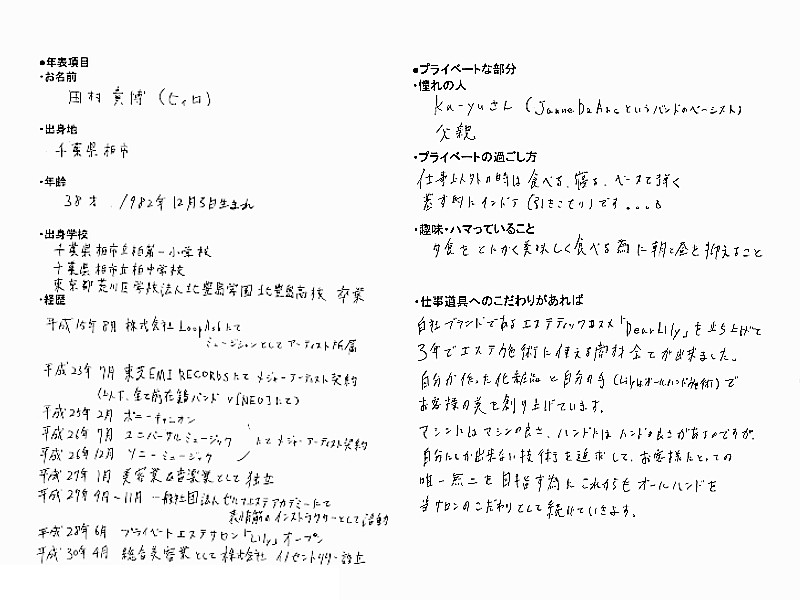 ●年表項目
・お名前
田村 貴博 (ヒィロ)
・出身地
千葉県柏市
・年齢
38才 1982年12月5日生まれ
・出身学校
千葉県柏市立柏第一小学校
千葉県柏市立柏中学校
東京都荒川区学校法人北豊島学園北豊島高校 卒業
・経歴
平成15年8月 株式会社LoopAshにて
ミュージシャンとしてアーティスト所属
平成23年7月 東芝EMI RECORDSにてメジャーアーティスト契約
(以下、全て前在籍バンド ν[NEO]にて)
平成25年2月 ポニーキャニオン
平成26年7月 ユニバーサルミュージック
にてメジャーアーティスト契約
平成26年12月 ソニーミュージック
平成27年1月 美容業&音楽業として独立
平成27年9月〜11月 一般社団法人セルフエステアカデミーにて
表情筋のインストラクターとして活動
平成28年6月 プライベートエステサロン「Lily」オープン
平成30年4月 総合美容業として株式会社 イノセントリリー設立
●プライベートな部分
・憧れの人
Ka-yuさん (Janne Da Arcというバンドのベーシスト)
父親
・プライベートの過ごし方
仕事以外の時は食べる、寝る、ベースを弾く
基本的にインドア(引きこもり)です。。。。
・趣味・ハマっていること
夕食をとにかく美味しく食べる為に朝と昼を抑えること
・仕事道具へのこだわりがあれば
自社ブランドであるエステティックコスメ「Dear Lily」を立ち上げて
3年でエステ施術に使える商材全てが出来ました。
自分が作った化粧品と自分の手(Lilyはオールハンド施術)で
お客様の美を創り上げています。
マシンにはマシンの良さ、ハンドにはハンドの良さがあるのですが、
自分にしか出来ない技術を追求して、お客様にとっての
唯一無二を目指す為にこれからもオールハンドを
当サロンのこだわりとして続けていきます。